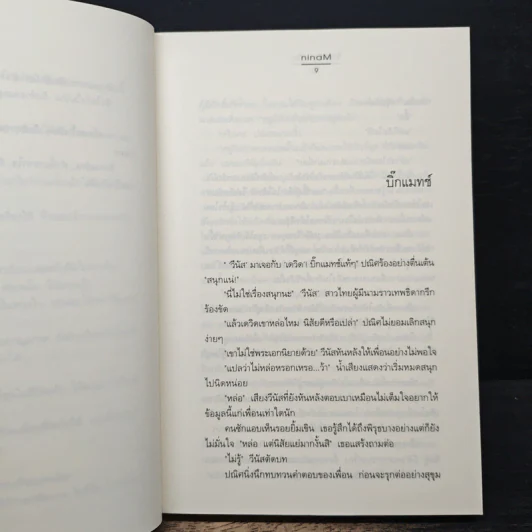 Manin
9
บิ๊กแมทช์
" 'วีนัส' มาเจอกับ 'เดวิด'! บิ๊กแมทช์แท้ๆ" ปณิคร้องอย่างตื่นเต้น
"สนุกแน่!"
"นี่ไม่ใช่เรื่องสนุกนะ" 'วีนัส' สาวไทยผู้มีนามราวเทพธิดากรีก
ร้องขัด
"แล้วเดวิดเขาหล่อไหม นิสัยดีหรือเปล่า" ปณิคไม่ยอมเลิกสนุก
ง่ายๆ
"เขาไม่ใช่พระเอกนิยายด้วย" วีนัสหันหลังให้เพื่อนอย่างไม่พอใจ
"แปลว่าไม่หล่อหรอกเหรอ...ว้า" น้ำเสียงแสดงว่าเริ่มหมดสนุก
ไปนิดหน่อย
"หล่อ" เสียงวีนัสที่ยังหันหลังตอบเบาเหมือนไม่เต็มใจอยากให้
ข้อมูลนี้แก่เพื่อนเท่าใดนัก
คนซักแอบเห็นรอยยิ้มเขิน เธอรู้สึกได้ถึงพิรุธบางอย่างแต่ก็ยัง
ไม่มั่นใจ "หล่อ แต่นิสัยแย่มากงั้นสิ" เธอแสร้งถามต่อ
"ไม่รู้" วีนัสตัดบท
ปณิคนิ่งนึกทบทวนคำตอบของเพื่อน ก่อนจะรุกต่ออย่างสุขุม